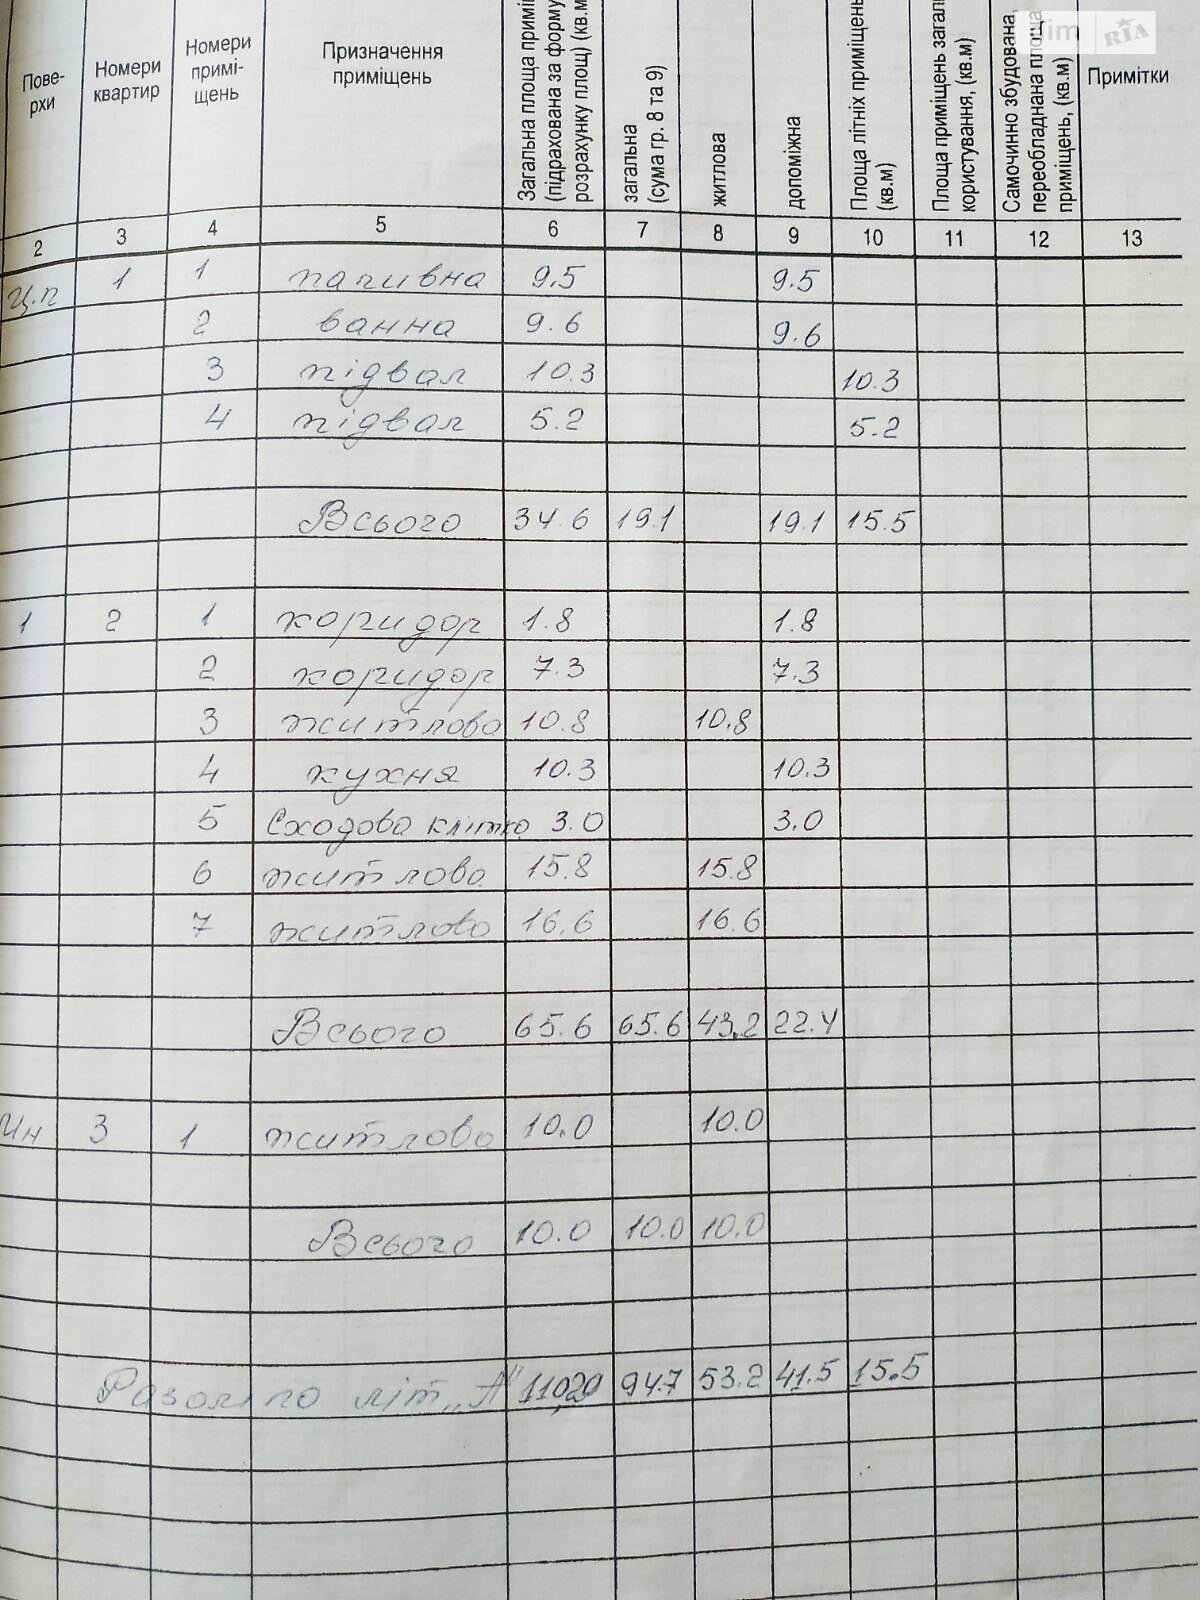 dim RIA
Пове-
рхи
Номери
квартир
Номери
примі-
щень
Призначення
приміщень
Загальна площа примі
(підрахована за форму
розрахунку площ) (кв.м
загальна
(сума гр. 8 та 9)
житлова
допоміжна
Площа літніх приміщень
(кв.м)
Площа приміщень загал
користування, (кв.м)
Самочинно збудована,
переобладнана площа
приміщень, (кв.м)
Примітки
2 3 4 5 6 7 8 9 10 11 12 13
Ц.п 1 1 паливна 9.5 9.5
2 ванна 9.6 9.6
3 підвал 10.3 10.3
4 підвал 5.2 5.2
Всього 34.6 19.1 19.1 15.5
1 2 1 коридор 1.8 1.8
2 коридор 7.3 7.3
3 житлова 10.8 10.8
4 кухня 10.3 10.3
5 Сходова клітка 3.0 3.0
6 житлова 15.8 15.8
7 житлова 16.6 16.6
Всього 65.6 65.6 43.2 22.4
Мн 3 1 житлова 10.0 10.0
Всього 10.0 10.0 10.0
Разом по літ „А" 110,20 94.7 53.2 41.5 15.5